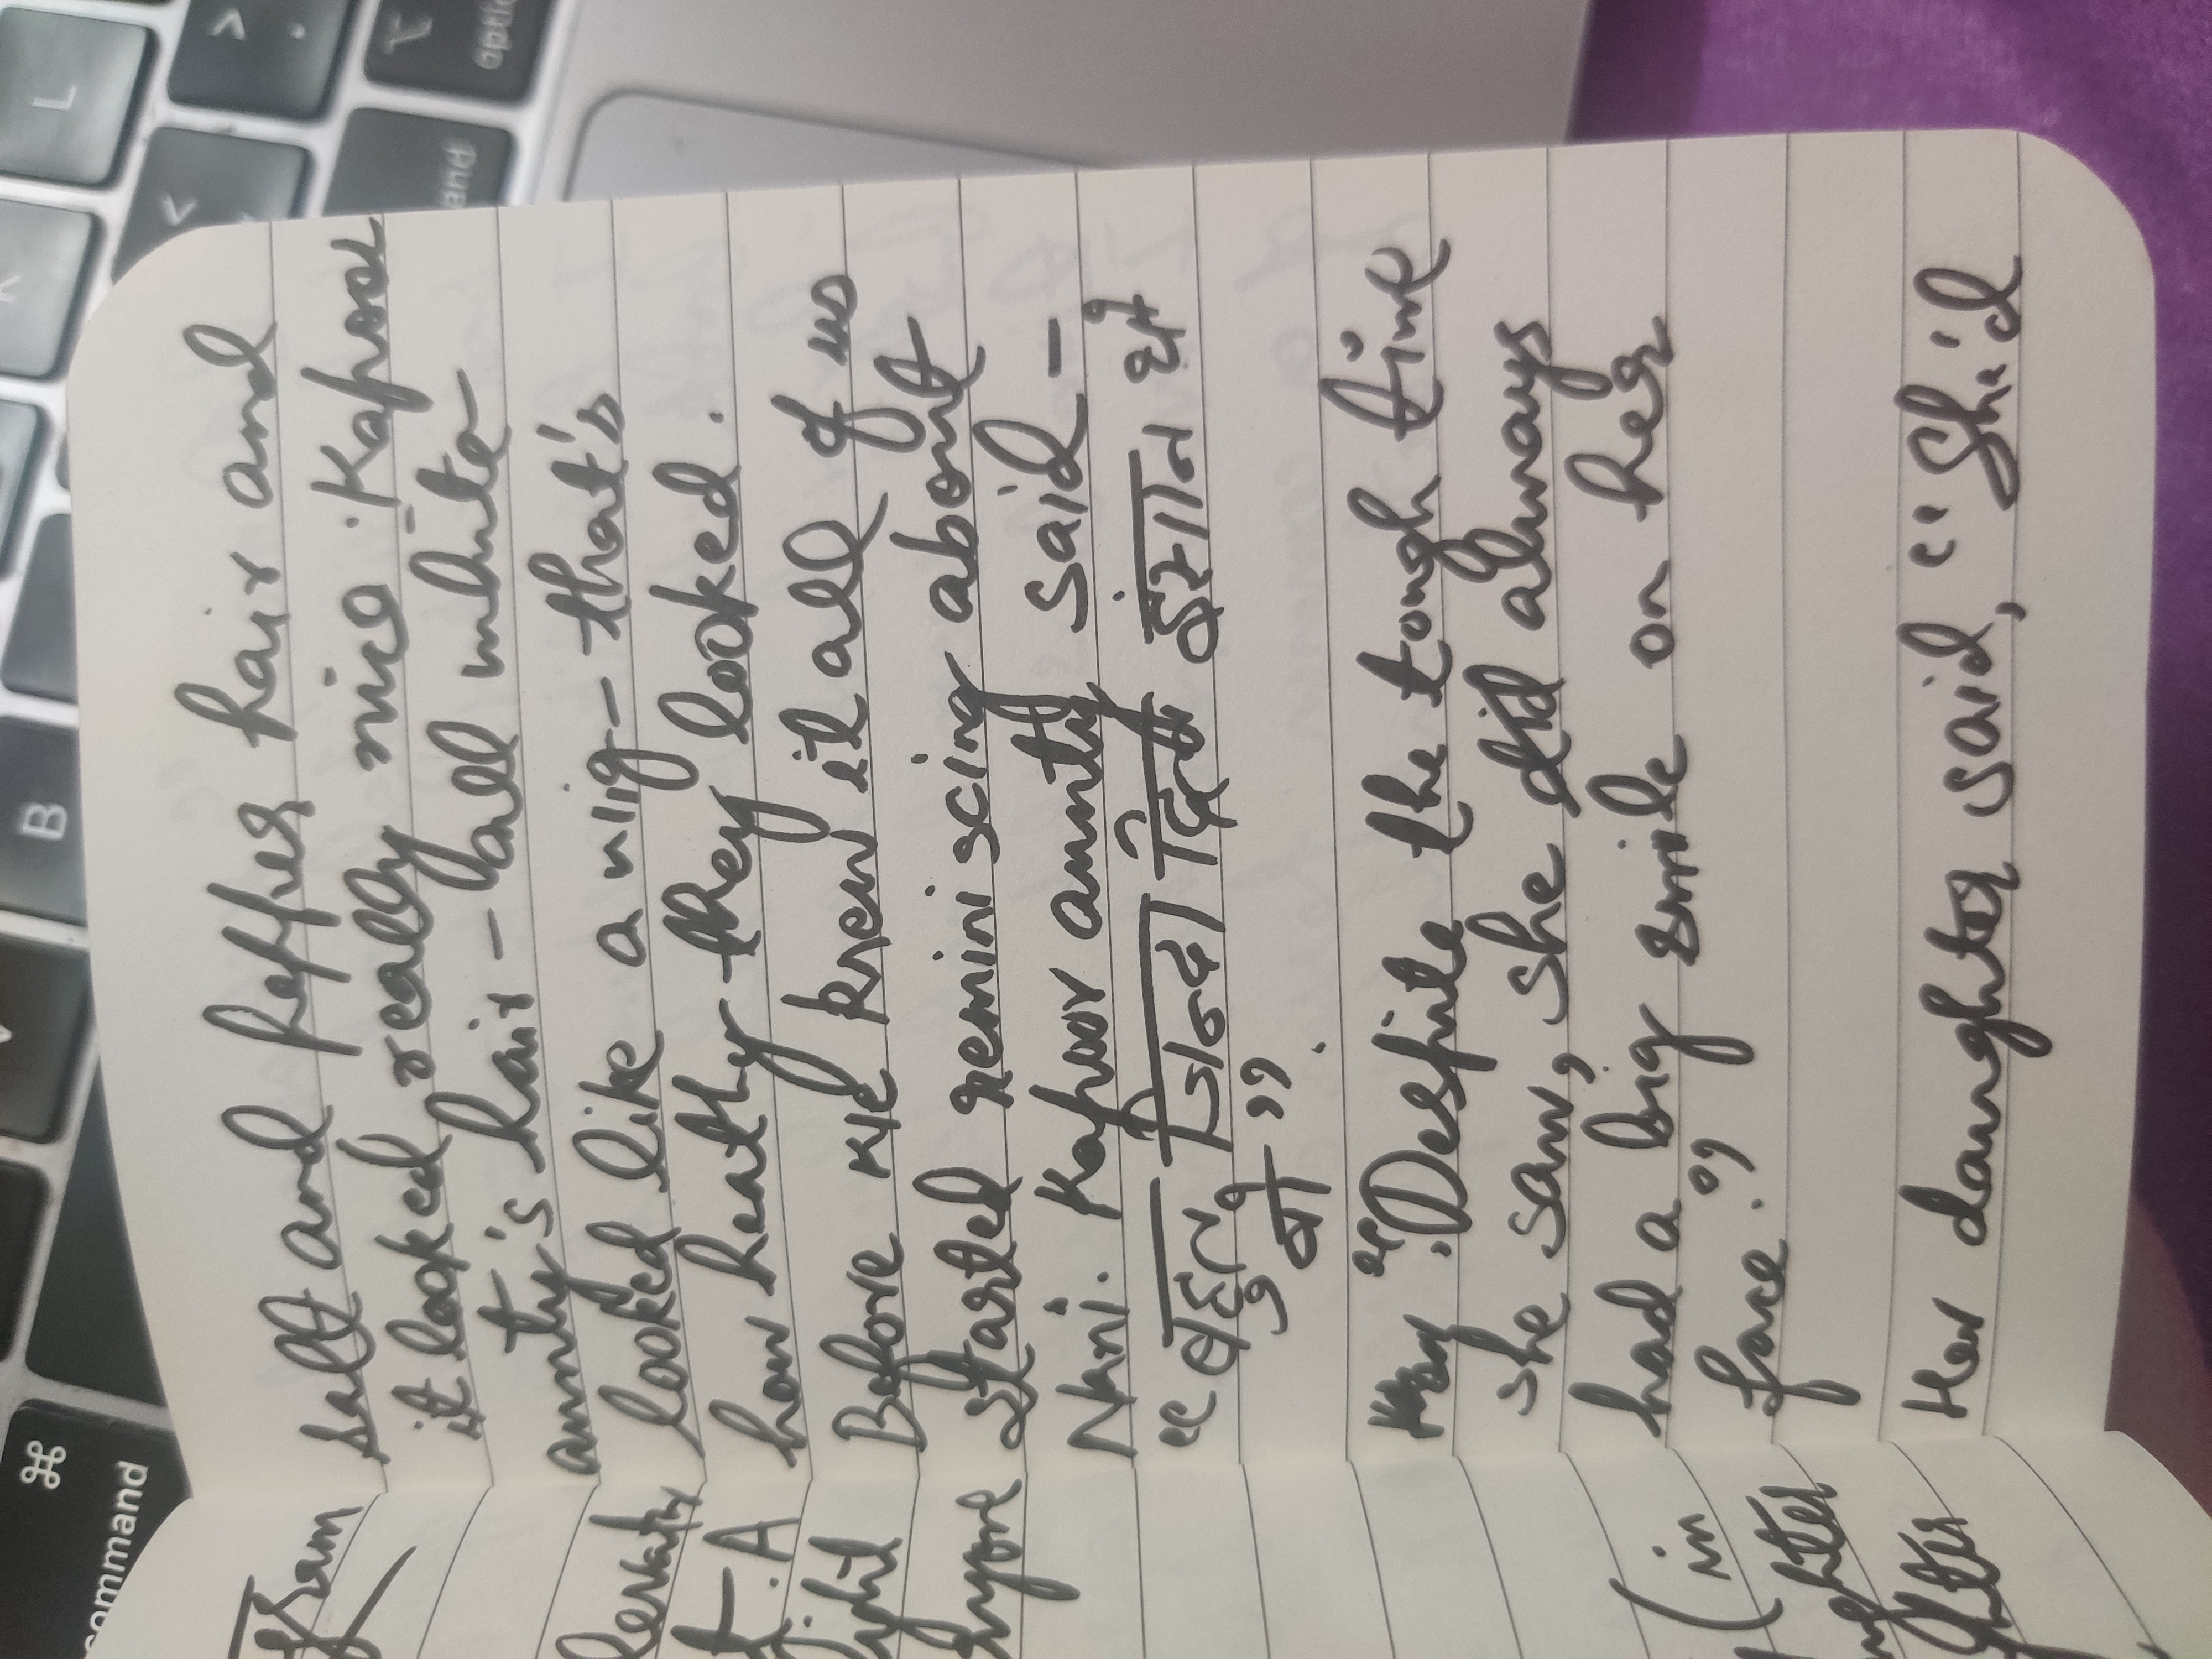 ⌘
command
B
K
L
<
>
option
gram
levator
t. A
light
nyone
(in
ughter
ghter
salt and pepper hair and
it looked really nice. Kapoor
aunty's hair - all white
looked like a wig - that's
how heathy they looked.
Before we knew it all of us
started reminiscing about
Nani. Kapoor aunty said -
"बहुत जिन्दा दिल इंसान थे
वो".
"Despite the tough time
she saw, she did always
had a big smile on her
face."
Her daughter said, "She'd